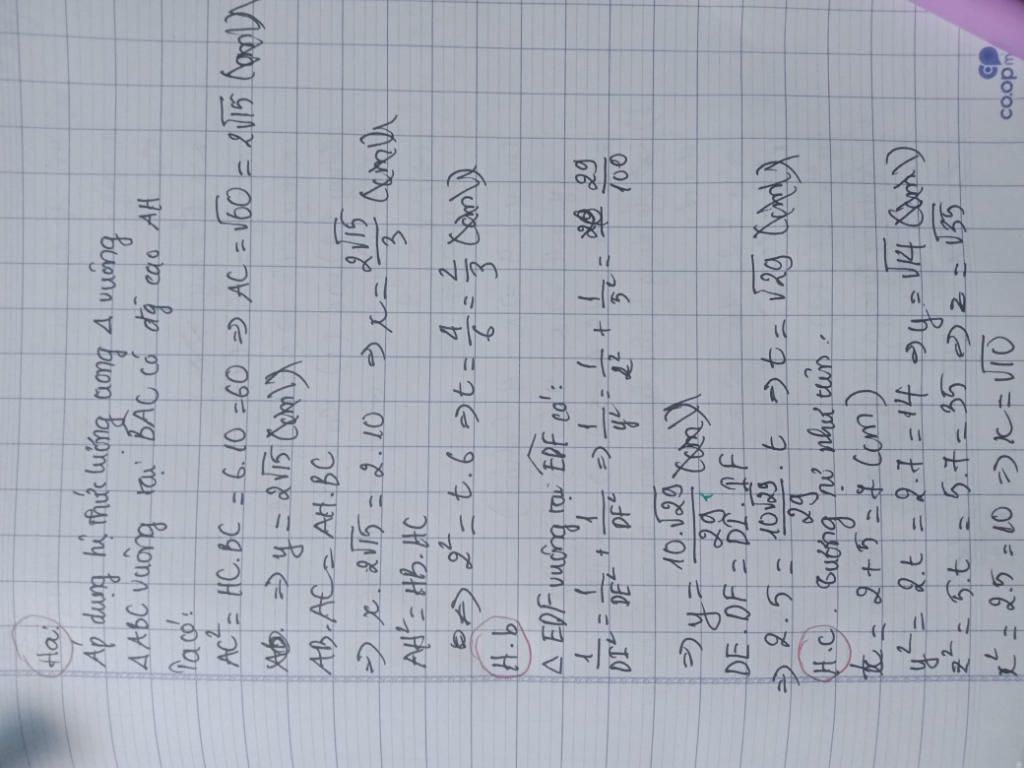 H.a
Áp dụng hệ thức lượng trong Δ vuông
ΔABC vuông tại BAC có đg cao AH
Ta có:
AC² = HC.BC = 6.10 = 60 ⇒ AC = √60 = 2√15 (cm)
⇒ y = 2√15 (cm)
AB.AC = AH.BC
⇒ x.2√15 = 2.10 ⇒ x = 2√15/3 (cm)
AH² = HB.HC
⇔ 2² = t.6 ⇒ t = 4/6 = 2/3 (cm)
H.b
Δ EDF vuông tại EDF có:
1/DI² = 1/DE² + 1/DF² ⇒ 1/y² = 1/2² + 1/5² = 29/100
⇒ y = 10.√29/29 (cm)
DE.DF = DI.IF
⇒ 2.5 = 10√29/29 . t ⇒ t = √29 (cm)
H.c
t = 2+5 = 7 (cm)
y² = 2t = 2.7 = 14 ⇒ y = √14 (cm)
z² = 5.t = 5.7 = 35 ⇒ z = √35
x² = 2.5 = 10 ⇒ x = √10
co.opm